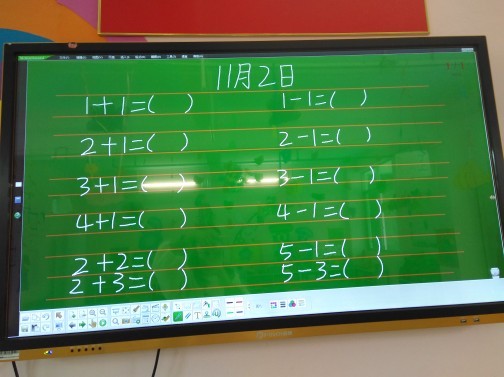 11月2日
1+1=( ) 1-1=( )
2+1=( ) 2-1=( )
3+1=( ) 3-1=( )
4+1=( ) 4-1=( )
2+2=( ) 5-1=( )
2+3=( ) 5-3=( )